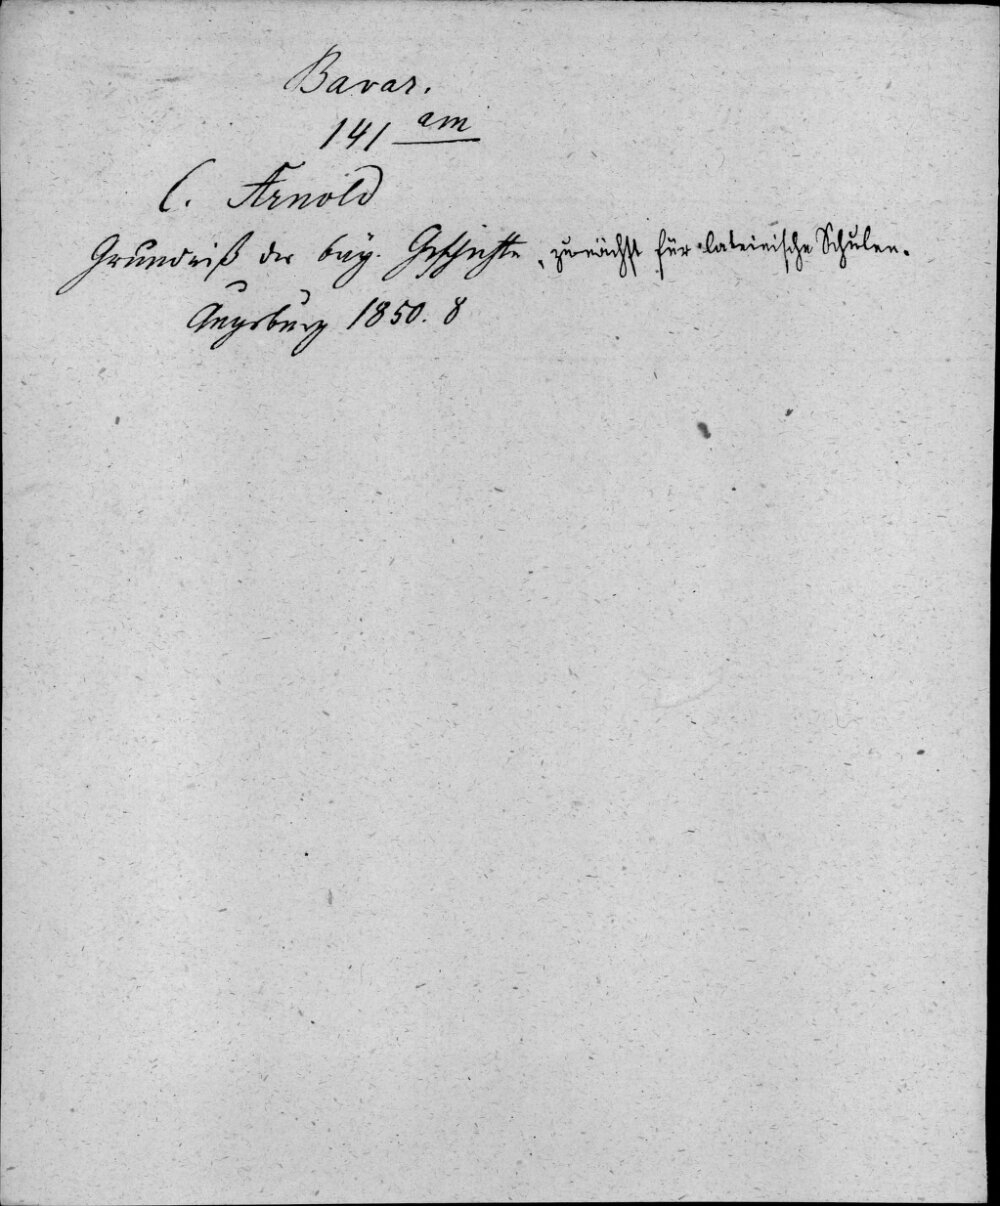 Bavar.
141 am
C. Arnold
Grundriß der bay. Geschichte, zunächst für lateinische Schulen.
Augsburg 1850. 8